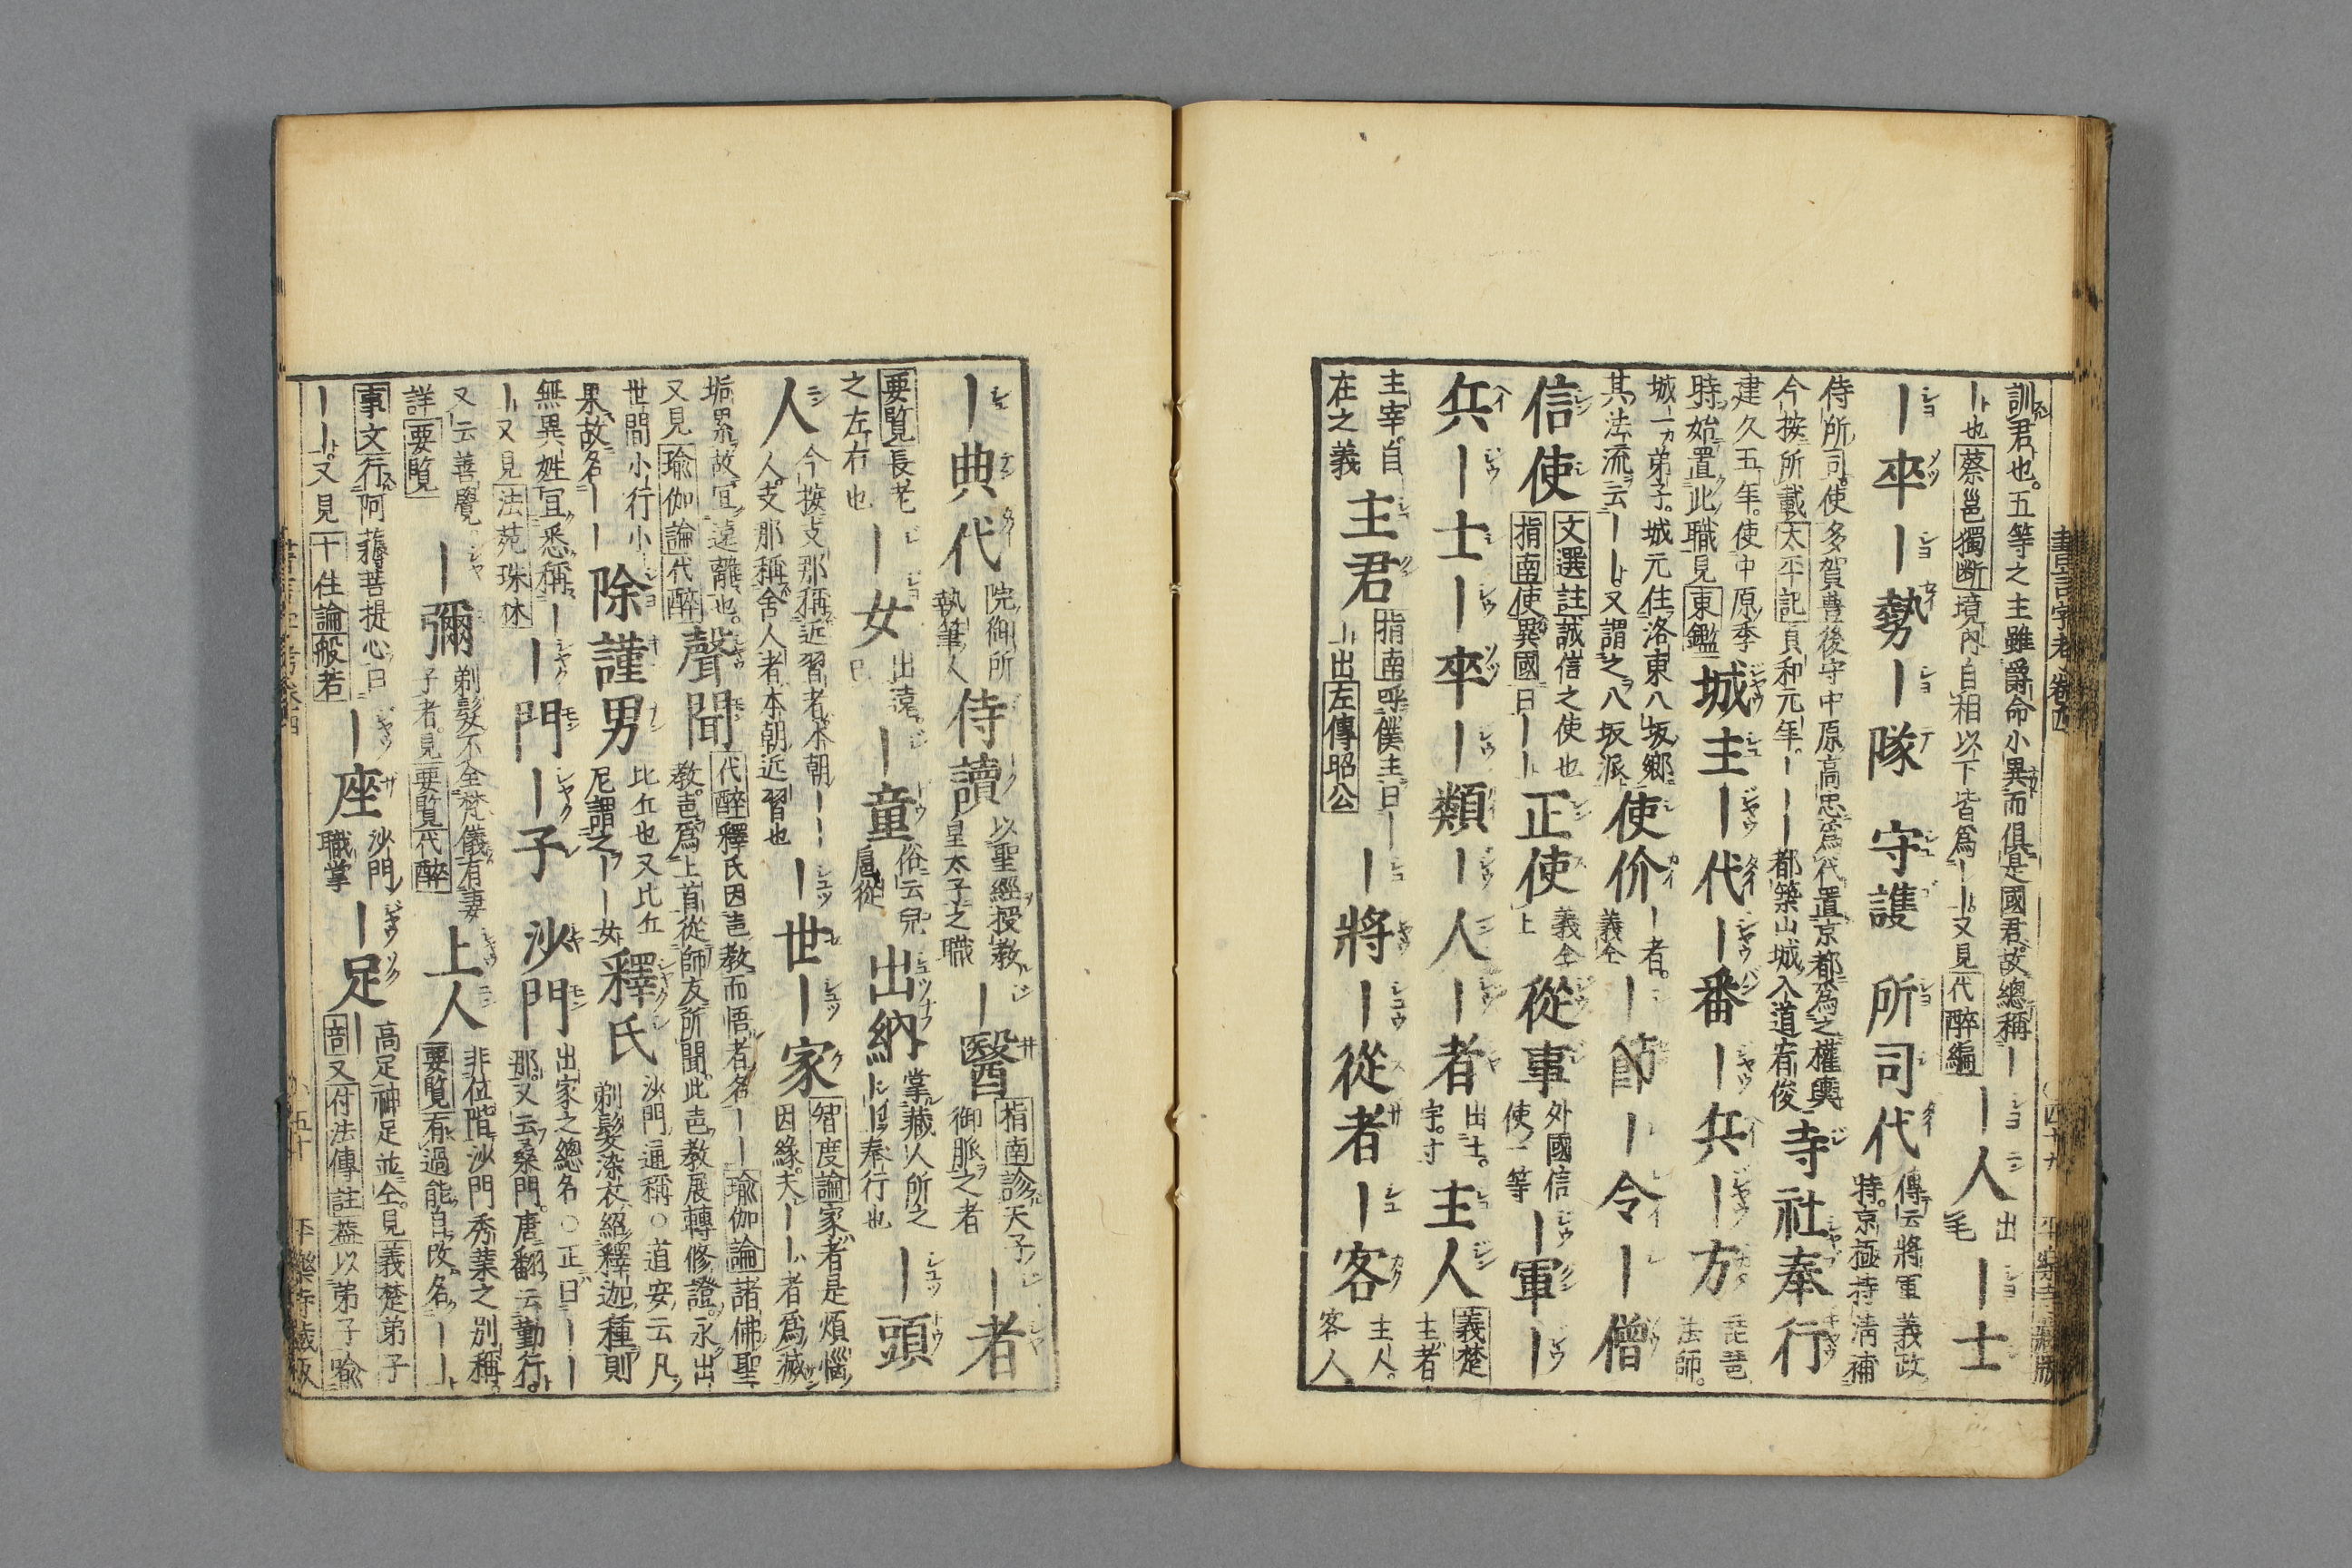 書言字考 卷四
訓君也。五等之主雖爵命小異而俱是國君。故總稱｜
｜也蔡邕獨断境内自相以下皆爲｜｜又見代醉編
｜人出毛
｜士
｜卒｜勢｜隊
守護
所司代傳云將軍義政時。京極持清補
侍所司。使多賀豊後守中原高忠爲代置京都爲之權輿
今按所載太平記貞和元年。｜｜｜都築山城入道宥俊
寺社奉行
建久五年。使中原季
時始置此職見東鑑
城主｜代｜番｜兵｜方琵琶法師。
城一弟子。城元住洛東八坂郷
其法流云｜｜又謂之八坂派
使价｜者。義仝｜節｜令｜僧
信使文選註誠信之使也
指南使異國曰｜｜
正使義仝上
從事外國信使一等
｜軍｜
兵｜士｜卒｜類｜人｜者出士。
主人義楚主者
主宰。自
在之義
主君指南呼僕主曰｜
｜出左傳昭公
｜將｜從者｜客主人。客人
｜典代院御所執筆人
侍讀以聖經授教皇太子之職
｜醫指南診天子御脈之者
｜者
要覧長老
之左右也
｜女出遠。
｜童俗云兒扈從
出納掌藏人所之｜奉行也
｜頭
人今按支那稱近習者本朝｜｜
人。支那稱舍人者本朝近習也
｜世｜家智度論家者是煩惱
因緣。夫｜｜者爲滅
垢累。故宜遠離也。
又見瑜伽論代醉
聲聞代醉釋氏因音教而悟者名｜｜瑜伽論諸佛聖
教。音爲上首從師友所聞此音教展轉修證。永出
世間小行小
果故名｜｜
除謹男比丘也又比丘
尼謂之｜｜女
釋氏沙門通稱○道安云凡
剃髪染衣紹釋迦種則
無異姓宜悉稱｜
｜又見法苑珠林
｜門｜子
沙門出家之總名○正曰｜｜
那。又云桑門。唐翻云勤行。
又云善覺。
詳要覧
｜彌剃髪不全梵儀有妻
子者。見要覧代醉
上人非位階沙門秀葉之別稱。
要覧有過能自改。名｜｜
事文行阿蓐菩提心曰
｜｜。又見十住論般若
｜座沙門職掌
｜足｜高足神足並仝。見義楚弟子
部又付法傳註葢以弟子喩
平樂寺藏板